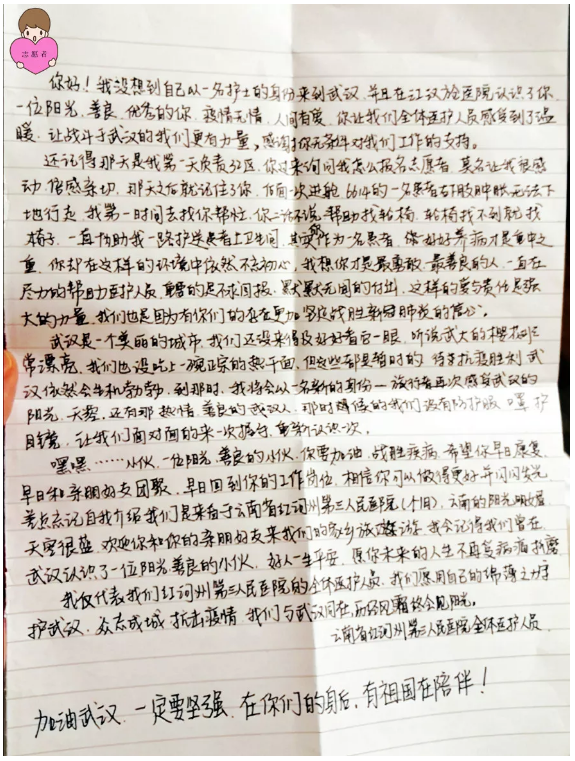 志愿者
你好！我没想到自己以一名护士的身份来到武汉，并且在江汉方舱医院认识了你，
一位阳光、善良、优秀的你，疫情无情，人间有爱，你让我们全体医护人员感受到了温
暖，让战斗于武汉的我们更有力量，感谢你无条件对我们工作的支持。
还记得那天是我第一天负责引区，你过来询问我怎么报名志愿者，莫名让我很感
动，倍感亲切，那天之后就记住了你，有一次进舱 66床的一名患者右下肢肿胀无法下
地行走，我第一时间去找你帮忙，你二话不说，帮助找轮椅，轮椅找不到就找
椅子，一直协助我一路护送患者上卫生间，其实你作为一名患者，你好好养病才是重中之
重，你却在这样的环境中依然不忘初心，我想你才是最勇敢、最善良的人，一直在
尽力的帮助医护人员，秉着的是不求回报，默默无闻的付出，这样的爱与责任是强
大的力量，我们也是因为有你们的存在更加坚定战胜新冠肺炎的信心。
武汉是一个美丽的城市，我们还没来得及好好看上一眼，听说武大的樱花
常漂亮，我们也没吃上一碗正宗的热干面，但这些都是暂时的，待到抗疫胜利，武
汉依然会生机勃勃，到那时，我将会以一名新的身份一旅行者再次感受武汉的
阳光、天空，还有那热情、善良的武汉人，那时候的我们没有防护服、口罩、护
目镜，让我们面对面的来一次拥抱，重新认识一次。
嘿嘿……小伙，一位阳光、善良的小伙，你要加油，战胜疾病，希望你早日康复，
早日和亲朋好友团聚，早日回到你的工作岗位，相信你可以做得更好并闪闪发光
差点忘记自我介绍，我们是来自于云南省红河州第三人民医院（个旧），云南的阳光明媚
天空很蓝，欢迎你和你的亲朋好友来我们的家乡旅游，我会记得我们曾在
武汉认识了一位阳光善良的小伙，好人一生平安，愿你未来的人生不再受病痛折磨。
我仅代表我们红河州第三人民医院的全体医护人员，我们愿用自己的绵薄之力守
护武汉，众志成城，抗击疫情，我们与武汉同在，历经风霜终会见阳光。
云南省红河州第三人民医院全体医护人员
加油武汉，一定要坚强，在你们的身后，有祖国在陪伴！